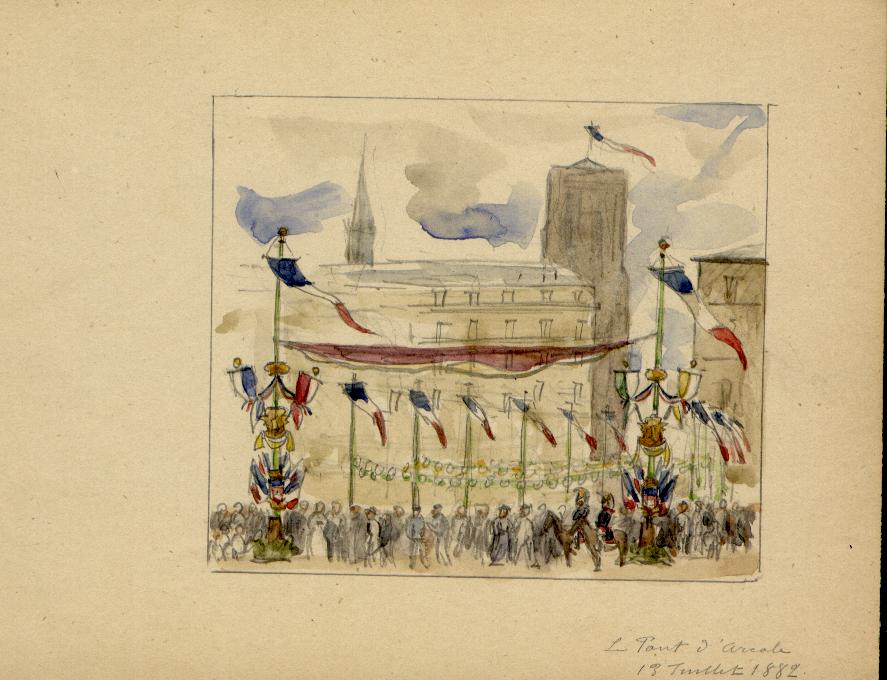 Le Pont d'Arcole
13 Juillet 1882.